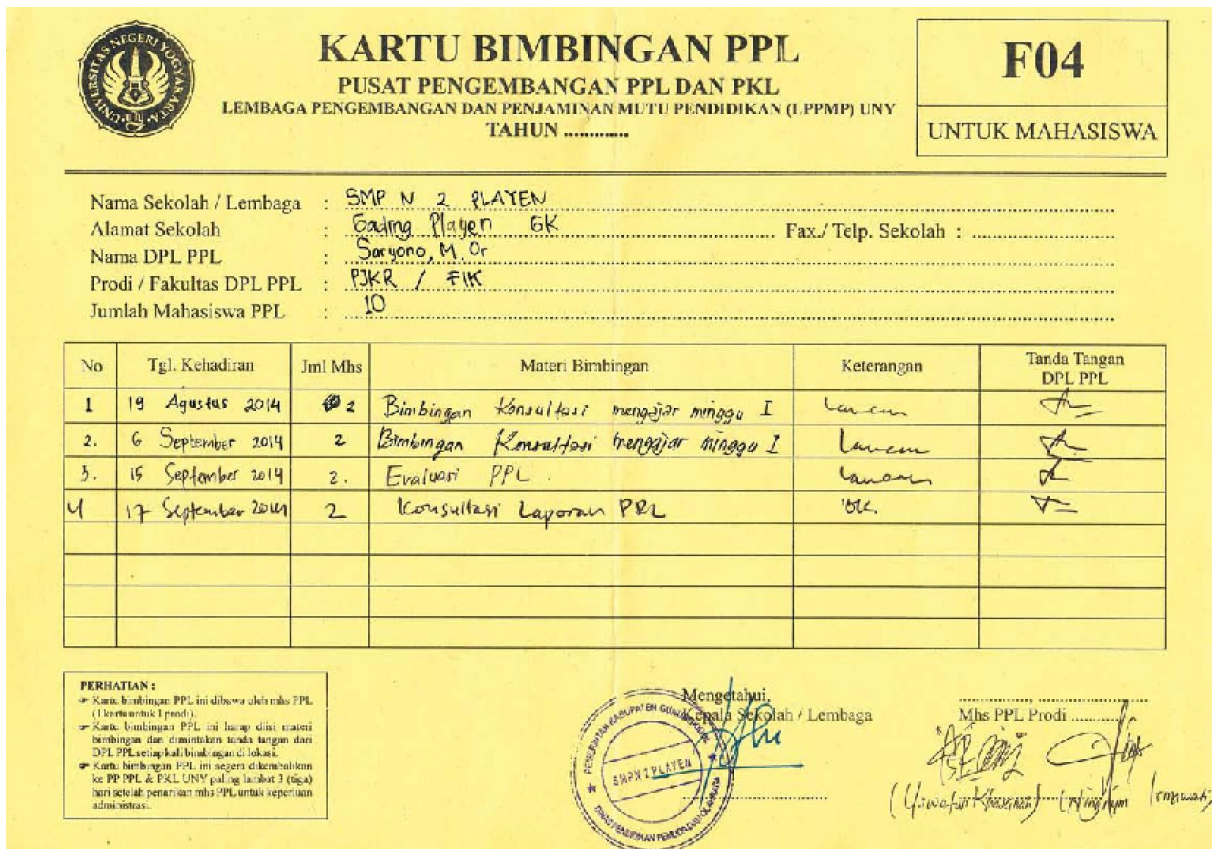 UNIVERSITAS NEGERI YOGYAKARTA
KARTU BIMBINGAN PPL
PUSAT PENGEMBANGAN PPL DAN PKL
LEMBAGA PENGEMBANGAN DAN PENJAMINAN MUTU PENDIDIKAN (LPPMP) UNY
TAHUN .............
F04
UNTUK MAHASISWA
Nama Sekolah / Lembaga : SMP N 2 PLAYEN
Alamat Sekolah : Gading Playen GK Fax./ Telp. Sekolah :
Nama DPL PPL : Saryono, M. Or
Prodi / Fakultas DPL PPL : PJKR / FIK
Jumlah Mahasiswa PPL : 10
No Tgl. Kehadiran Jml Mhs Materi Bimbingan Keterangan Tanda Tangan DPL PPL
1 19 Agustus 2014 2 Bimbingan Konsultasi mengajar minggu I Lancar
2. 6 September 2014 2 Bimbingan Konsultasi mengajar minggu I Lancar
3. 15 September 2014 2. Evaluasi PPL . Lancar
4 17 September 2014 2 Konsultasi Laporan PPL OK.
PERHATIAN :
Kartu bimbingan PPL ini dibawa oleh mhs PPL
(1 kartu untuk 1 prodi).
Kartu bimbingan PPL ini harap diisi materi
bimbingan dan dimintakan tanda tangan dari
DPL PPL setiap kali bimbingan di lokasi.
Kartu bimbingan PPL ini segera dikembalikan
ke PP PPL & PKL UNY paling lambat 3 (tiga)
hari setelah penarikan mhs PPL untuk keperluan
administrasi.
Mengetahui,
Kepala Sekolah / Lembaga
SMPN 2 PLAYEN
Mhs PPL Prodi ............